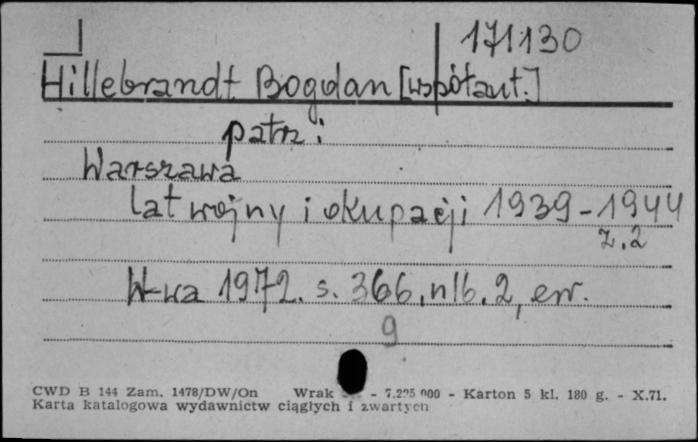 171130
Hillebrandt Bogdan [współaut.]
patrz:
Warszawa
lat wojny i okupacji 1939-1944
z.2
W-wa 1972. s. 366, nlb. 2, err.
9
CWD B 144 Zam. 1478/DW/On Wrak - 7.225 000 - Karton 5 kl. 180 g. - X.71.
Karta katalogowa wydawnictw ciągłych i zwartych